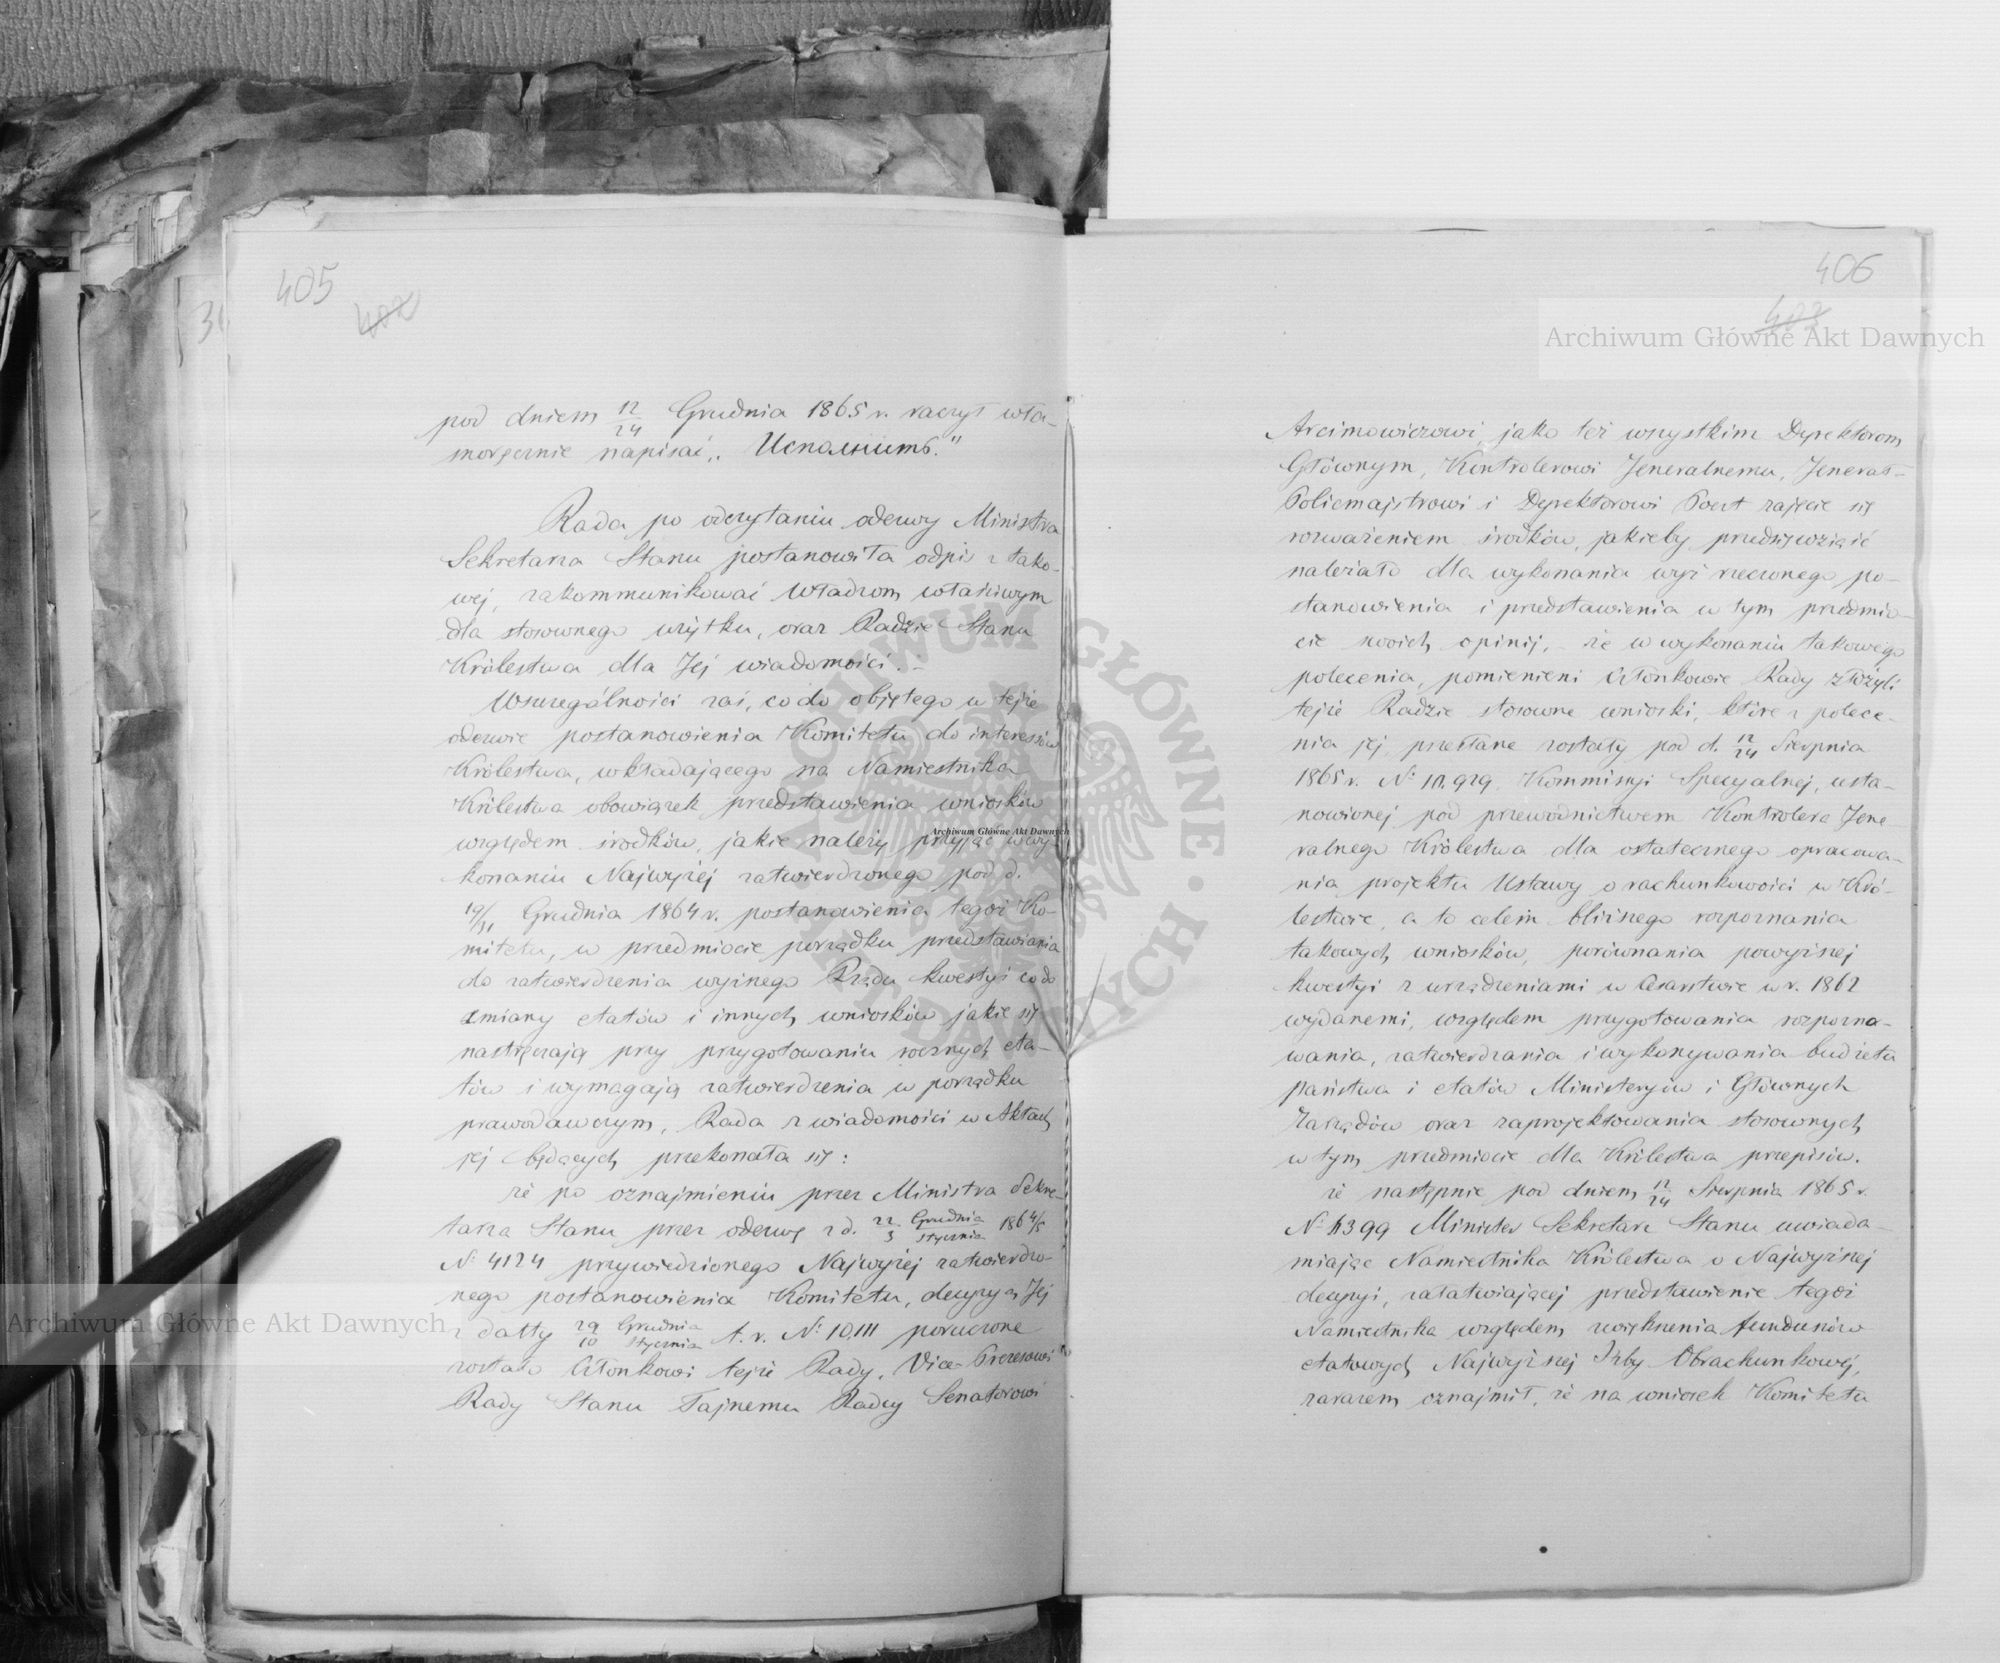 405
402
pod dniem 12/24 Grudnia 1865 r. raczył wła-
snoręcznie napisać „Исполнить."
Rada po odczytaniu odezwy Ministra
Sekretarza Stanu postanowiła odpis z tako-
wej, zakommunikować Władzom właściwym
dla stosownego użytku, oraz Radzie Stanu
Królestwa dla Jej wiadomości.-
Wszczególności zaś, co do objętego w tejże
odezwie postanowienia Komitetu do interessów
Królestwa, wkładającego na Namiestnika
Królestwa obowiązek przedstawienia wniosków
względem środków, jakie należy przyjąć w wy-
konaniu Najwyżej zatwierdzonego pod d.
19/31 Grudnia 1864 r. postanowienia tegoż Ko-
mitetu, w przedmiocie porządku przedstawiania
do zatwierdzenia wyższego Rządu kwestyi co do
zmiany etatów i innych wniosków jakie się
nastręczają przy przygotowaniu rocznych eta-
tów i wymagają zatwierdzenia w porządku
prawodawczym, Rada z wiadomości w Aktach
jej będących przekonała się:
że po oznajmieniu przez Ministra Sekre-
tarza Stanu przez odezwę z d. 22 Grudnia/3 Stycznia 1864/5
N: 4124 przywiedzionego Najwyżej zatwierdzo-
nego postanowienia Komitetu, decyzyą Jej
z datty 29 Grudnia/10 Stycznia t. r. N: 10,111 poruczone
zostało Członkowi tejże Rady, Vice-Prezesowi
Rady Stanu Tajnemu Radcy Senatorowi
406
403
Arcimowiczowi, jako też wszystkim Dyrektorom
Głównym, Kontrolerowi Jeneralnemu, Jenerał-
Policmajstrowi i Dyrektorowi Poczt zajęcie się
rozważeniem środków, jakieby przedsięwziąść
należało dla wykonania wyż rzeczonego po-
stanowienia i przedstawienia w tym przedmio-
cie swoich opinij,- że w wykonaniu takowego
polecenia, pomienieni Członkowie Rady złożyli
tejże Radzie stosowne wnioski, które z polece-
nia jej, przesłane zostały pod d. 12/24 Sierpnia
1865 r. N: 10,929, Kommissyi Specyalnej, usta-
nowionej pod przewodnictwem Kontrolera Jene-
ralnego Królestwa dla ostatecznego opracowa-
nia projektu Ustawy o rachunkowości w Kró-
lestwie, a to celem bliższego rozpoznania
takowych wniosków, porównania powyższej
kwestyi z urządzeniami w Cesarstwie w r. 1862
wydanemi, względem przygotowania rozpozna-
wania, zatwierdzania i wykonywania budżetu
państwa i etatów Ministeryów i Głównych
Zarządów oraz zaprojektowania stosownych
w tym przedmiocie dla Królestwa przepisów.
że następnie pod dniem 12/24 Sierpnia 1865 r.
N: 1399 Minister Sekretarz Stanu uwiada-
miając Namiestnika Królestwa o Najwyższej
decyzyi, załatwiającej przedstawienie tegoż
Namiestnika względem zwiększenia funduszów
etatowych Najwyższej Izby Obrachunkowej,
zarazem oznajmił, że na wniosek Komitetu
Archiwum Główne Akt Dawnych
Archiwum Główne Akt Dawnych
Archiwum Główne Akt Dawnych
ARCHIWUM GŁÓWNE AKT DAWNYCH